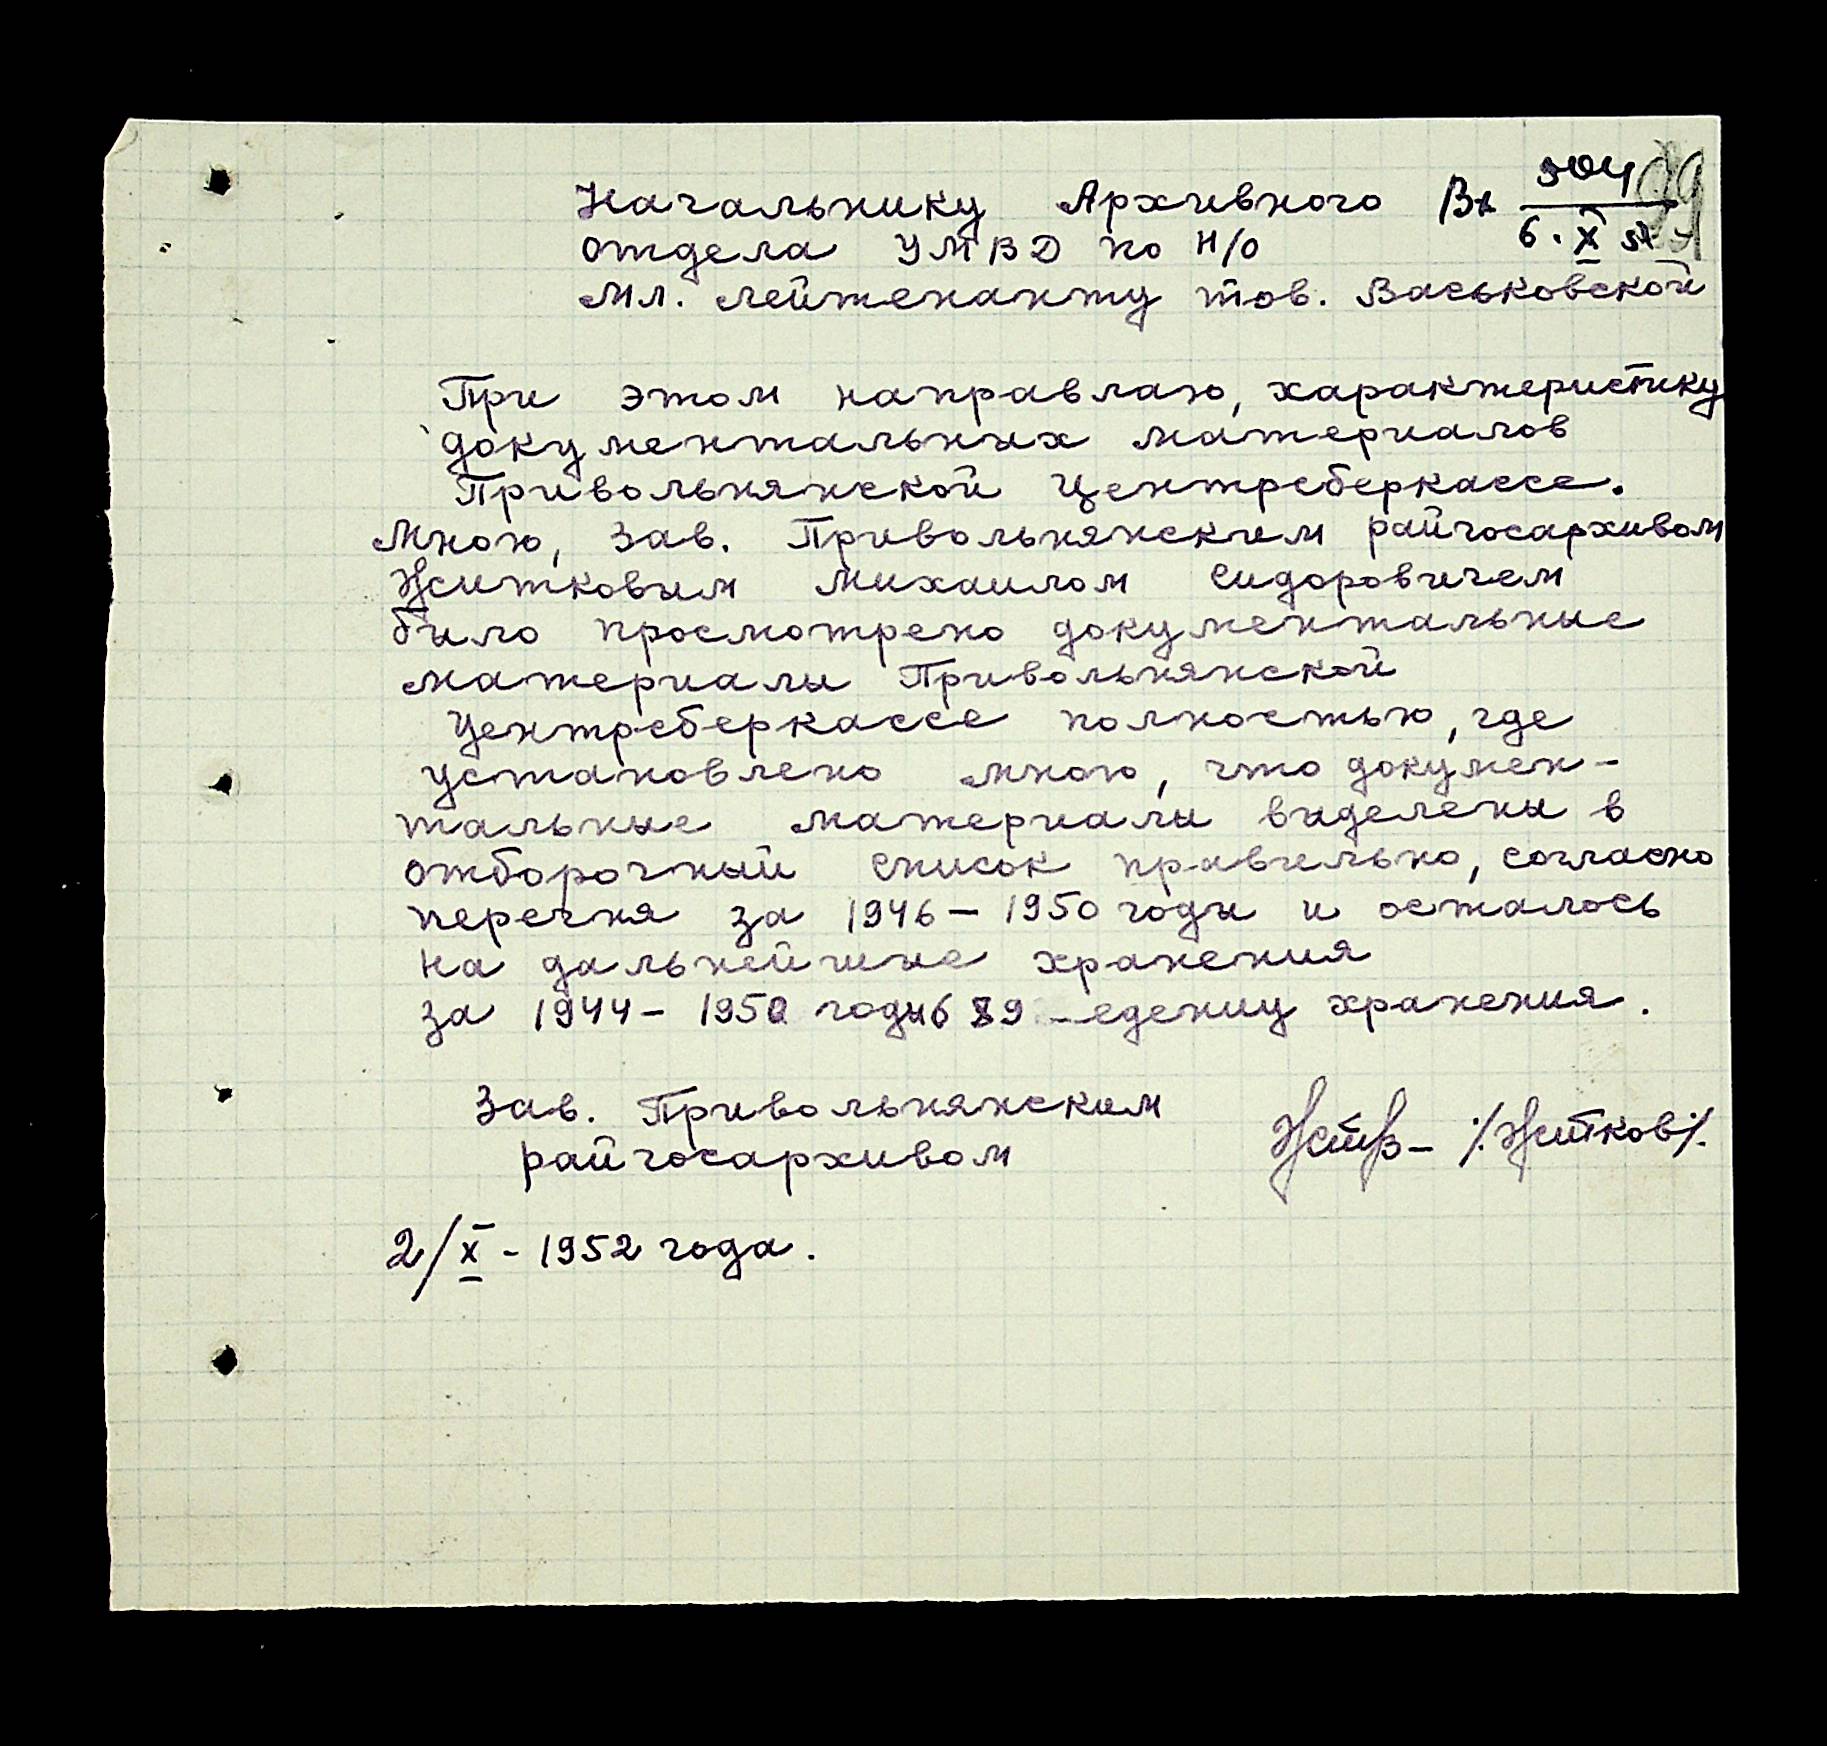 Начальнику Архивного Вх 304
отдела УМВД по Н/О 6. X 52
Мл. лейтенанту тов. Васьковской
При этом направлаю, характеристику
документальных материалов
Привольнянской Центрсберкассе.
Мною, Зав. Привольнянским райгосархивом
Житковым Михаилом Сидоровичем
было просмотрено документальные
материалы Привольнянской
Центрсберкассе полностью, где
установлено мною, что докумен-
тальные материалы выделены в
отборочный список правильно, согласно
перечня за 1946 – 1950 годы и осталось
на дальнейшие хранения
за 1944 – 1950 годы 689 – едениц хранения.
Зав. Привольнянским
райгосархивом /Житков/.
2/X - 1952 года.